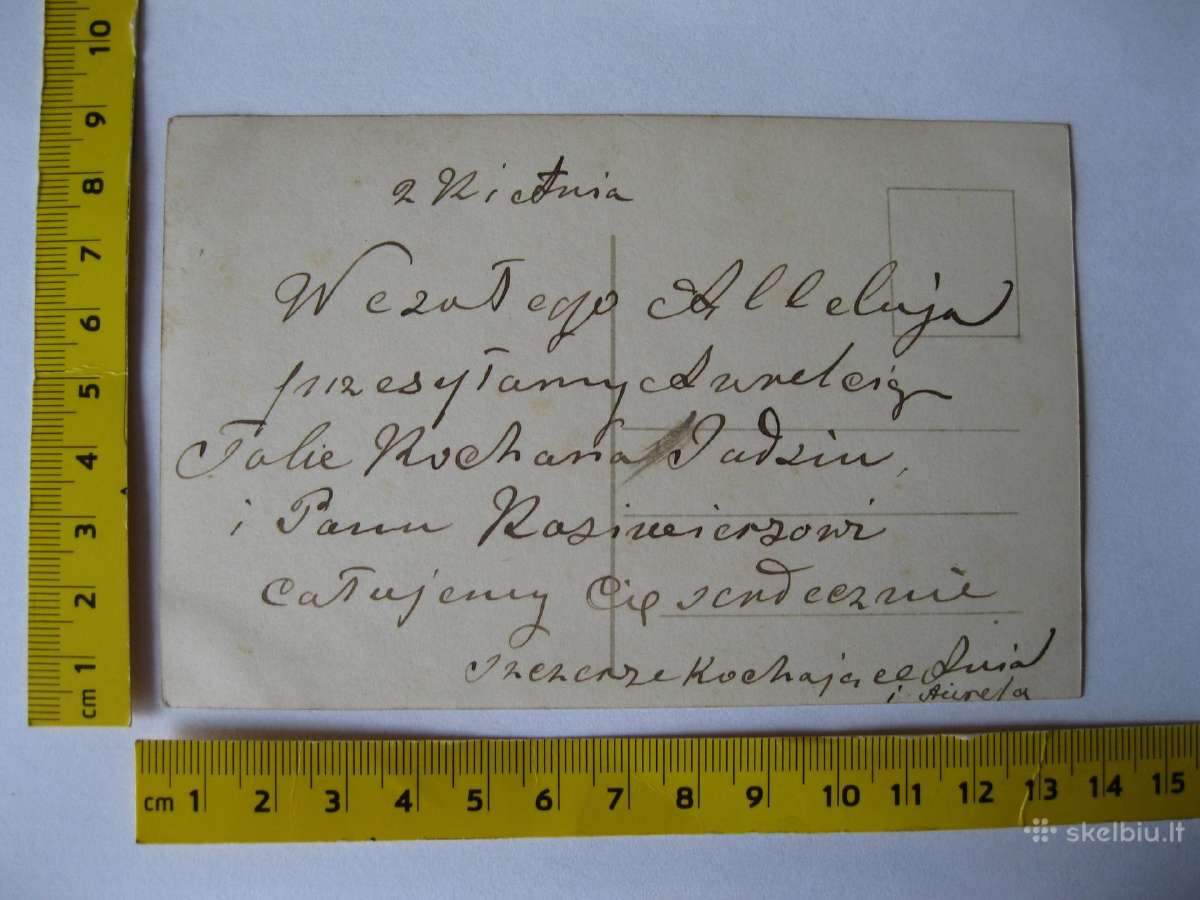 2 Kietnia
Wezołego Alleluja
przesyłamy Aurelcią
Tobie Kochana Jadziu,
i Panu Kazimierzowi
całujemy Cię serdecznie
Szczerze Kochające Ania
i Aurela
10
9
8
7
6
5
4
3
2
1
cm
cm 1 2 3 4 5 6 7 8 9 10 11 12 13 14 15
skelbiu.lt